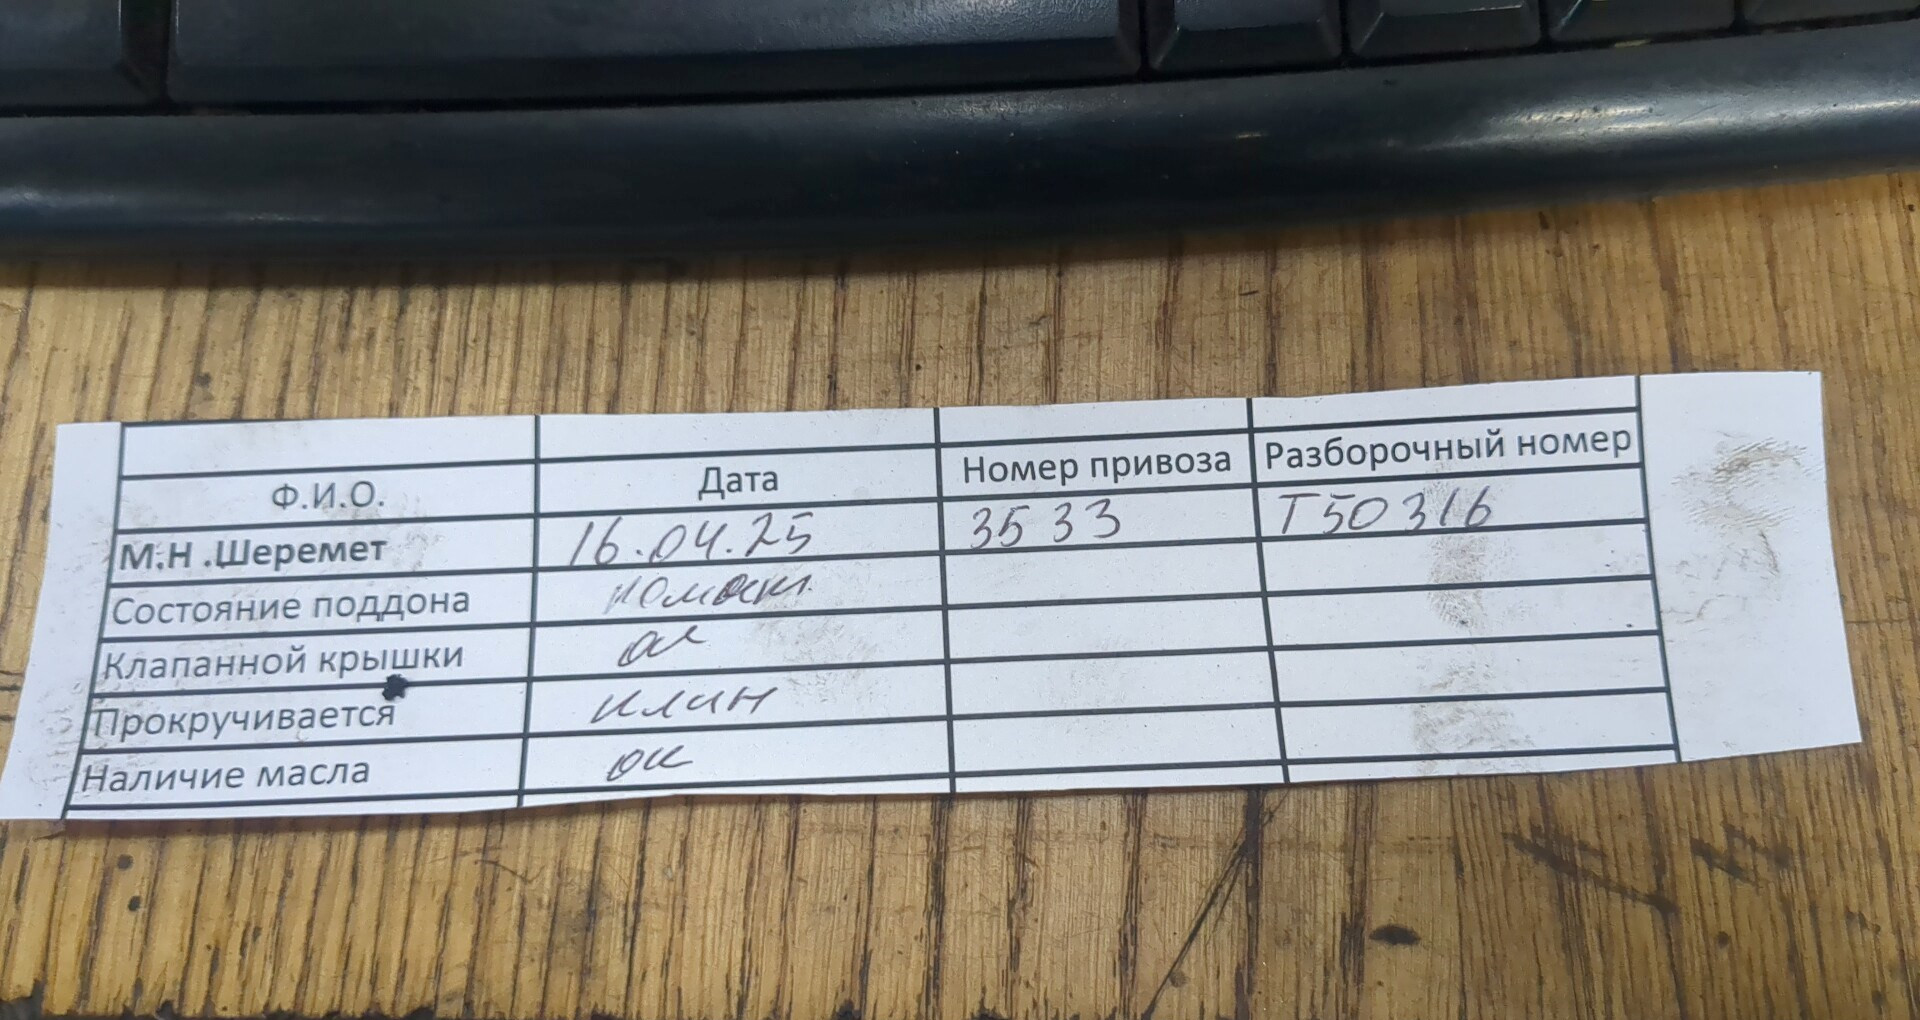 Ф.И.О. Дата Номер привоза Разборочный номер
М.Н .Шеремет 16.04.25 3533 Т50316
Состояние поддона
Клапанной крышки ок
Прокручивается клин
Наличие масла ок